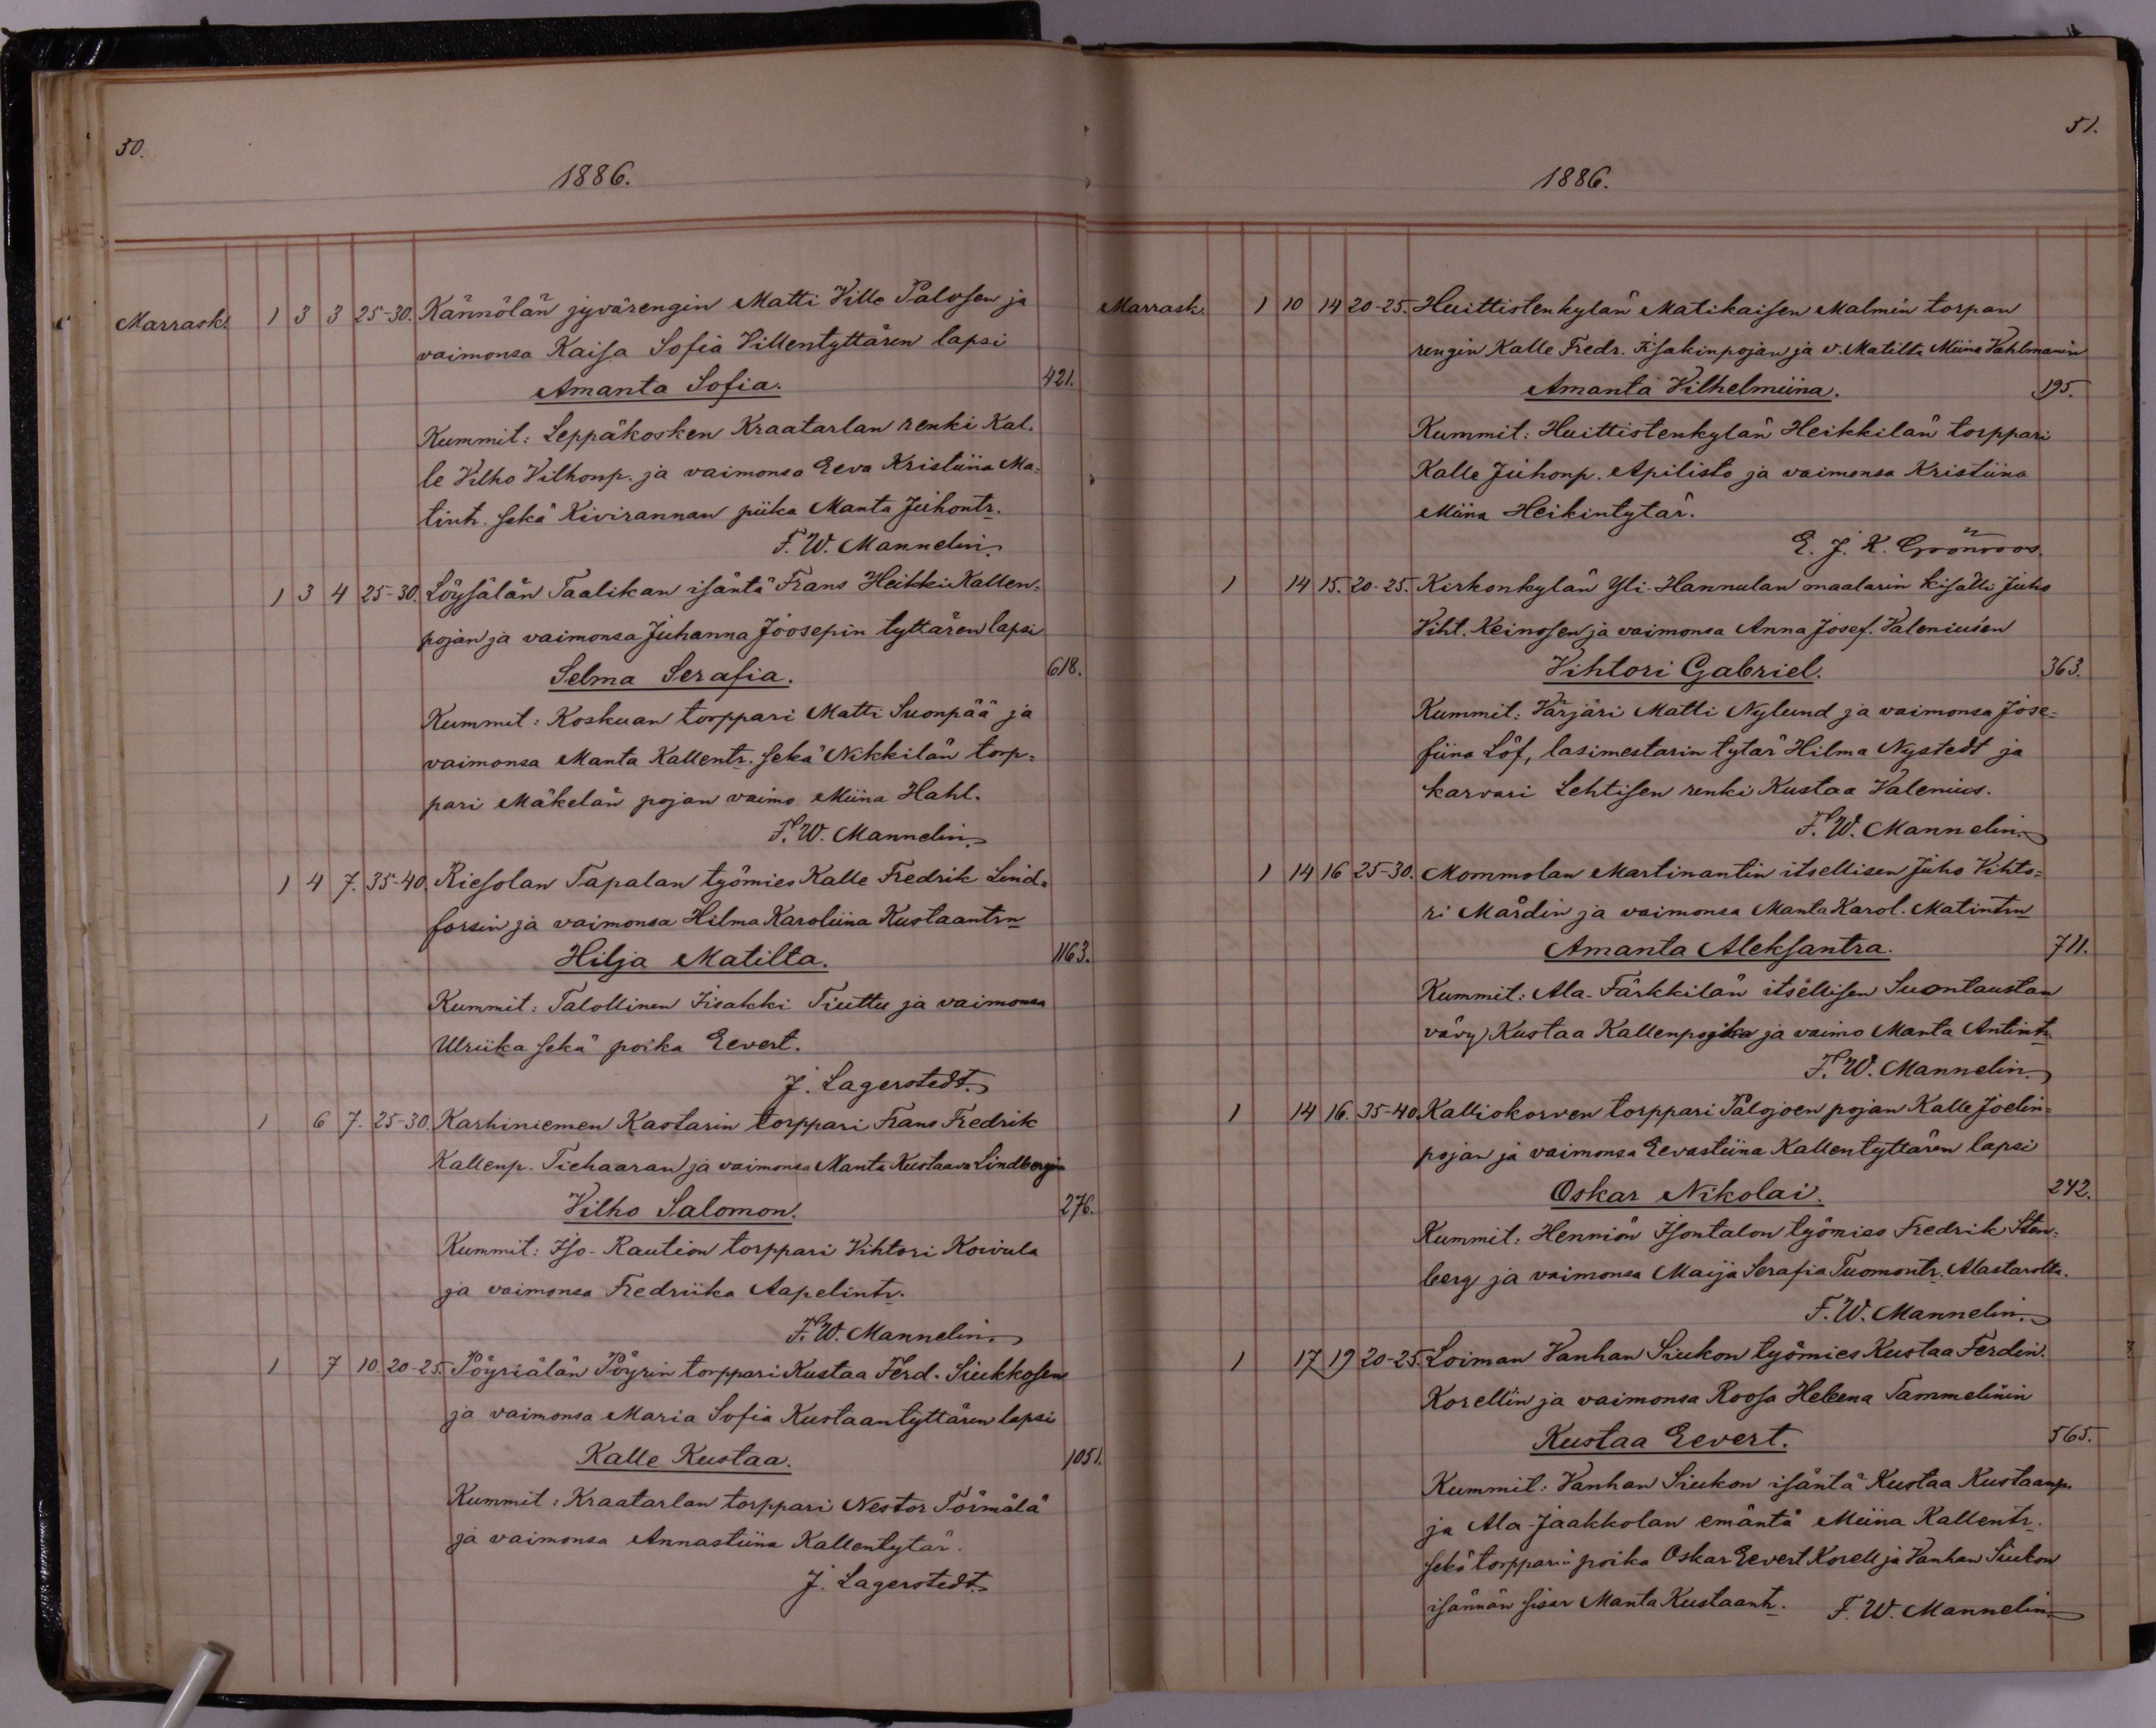 50.
1886.
Marrask. 1 3 3 25-30. Kännölän jyvärengin Matti Ville Palosen ja
vaimonsa Kaisa Sofia Villentyttären lapsi
Amanta Sofia. 421.
Kummit: Leppäkosken Kraatarlan renki Kal-
le Vilho Vilhonp. ja vaimonsa Eeva Kristiina Ma-
tintr. sekä Kivirannan piika Manta Juhontr.
F. W. Mannelin.
1 3 4 25-30. Löysälän Taalikan isäntä Frans Heikki Kallen-
pojan ja vaimonsa Juhanna Joosepin tyttären lapsi
Selma Serafia. 618.
Kummit: Koskuan torppari Matti Suonpää ja
vaimonsa Manta Kallentr. sekä Nikkilän torp-
pari Mäkelän pojan vaimo Miina Hahl.
F. W. Mannelin.
1 4 7. 35-40. Riesolan Tapalan työmies Kalle Fredrik Lind-
forsin ja vaimonsa Hilma Karoliina Kustaantrn
Hilja Matilta. 1163.
Kummit: Talollinen Iisakki Tiuttu ja vaimonsa
Ulriika sekä poika Eevert.
J. Lagerstedt.
1 6 7. 25-30. Karhiniemen Kastarin torppari Frans Fredrik
Kallenp. Tiehaaran ja vaimonsa Manta Kustaava Lindbergin
Vilho Salomon. 276.
Kummit: Iso-Raution torppari Vihtori Koivula
ja vaimonsa Fredriika Aapelintr.
F. W. Mannelin.
1 7 10. 20-25. Pöyriälän Pöyrin torppari Kustaa Ferd. Siukkosen
ja vaimonsa Maria Sofia Kustaantyttären lapsi
Kalle Kustaa. 1051.
Kummit: Kraatarlan torppari Nestor Törmälä
ja vaimonsa Annastiina Kallentytär.
J. Lagerstedt.
51.
1886.
Marrask. 1 10 14 20-25. Huittistenkylän Matikaisen Malmin torpan
rengin Kalle Fredr. Iisakinpojan ja v. Matilta Miina Vahlmanin
Amanta Vilhelmiina. 195.
Kummit: Huittistenkylän Heikkilän torppari
Kalle Juhonp. Apilisto ja vaimonsa Kristiina
Miina Heikintytär.
E. J. K. Grönroos.
1 14 15. 20-25. Kirkonkylän Yli-Hannulan maalarin kisälli Juho
Viht. Keinosen ja vaimonsa Anna Josef. Valeniusen
Vihtori Gabriel. 363.
Kummit: Värjäri Matti Nylund ja vaimonsa Jose-
fiina Löf, lasimestarin tytär Hilma Nystedt ja
karvari Lehtisen renki Kustaa Valenius.
F. W. Mannelin.
1 14 16 25-30. Mommolan Martinantin itsellisen Juho Vihto-
ri Mårdin ja vaimonsa Manta Karol. Matintrn
Amanta Aleksantra. 711.
Kummit: Ala-Färkkilän itsellisen Suontaustan
vävy Kustaa Kallenpoika ja vaimo Manta Antintr.
F. W. Mannelin.
1 14 16. 35-40. Kalliokorven torppari Palojoen pojan Kalle Joelin-
pojan ja vaimonsa Eevastiina Kallentyttären lapsi
Oskar Nikolai. 242.
Kummit: Hennion Isontalon työmies Fredrik Sten-
berg ja vaimonsa Maija Serafia Tuomontr. Alastarolta.
F. W. Mannelin.
1 17 19 20-25. Loiman Vanhan Siukon työmies Kustaa Ferdin.
Korellin ja vaimonsa Roosa Heleena Tammelinin
Kustaa Eevert. 565.
Kummit: Vanhan Siukon isäntä Kustaa Kustaanp.
ja Ala-Jaakkolan emäntä Miina Kallentr.
sekä torpparin poika Oskar Eevert Korell ja Vanhan Siukon
isännän sisar Manta Kustaantr. F. W. Mannelin.